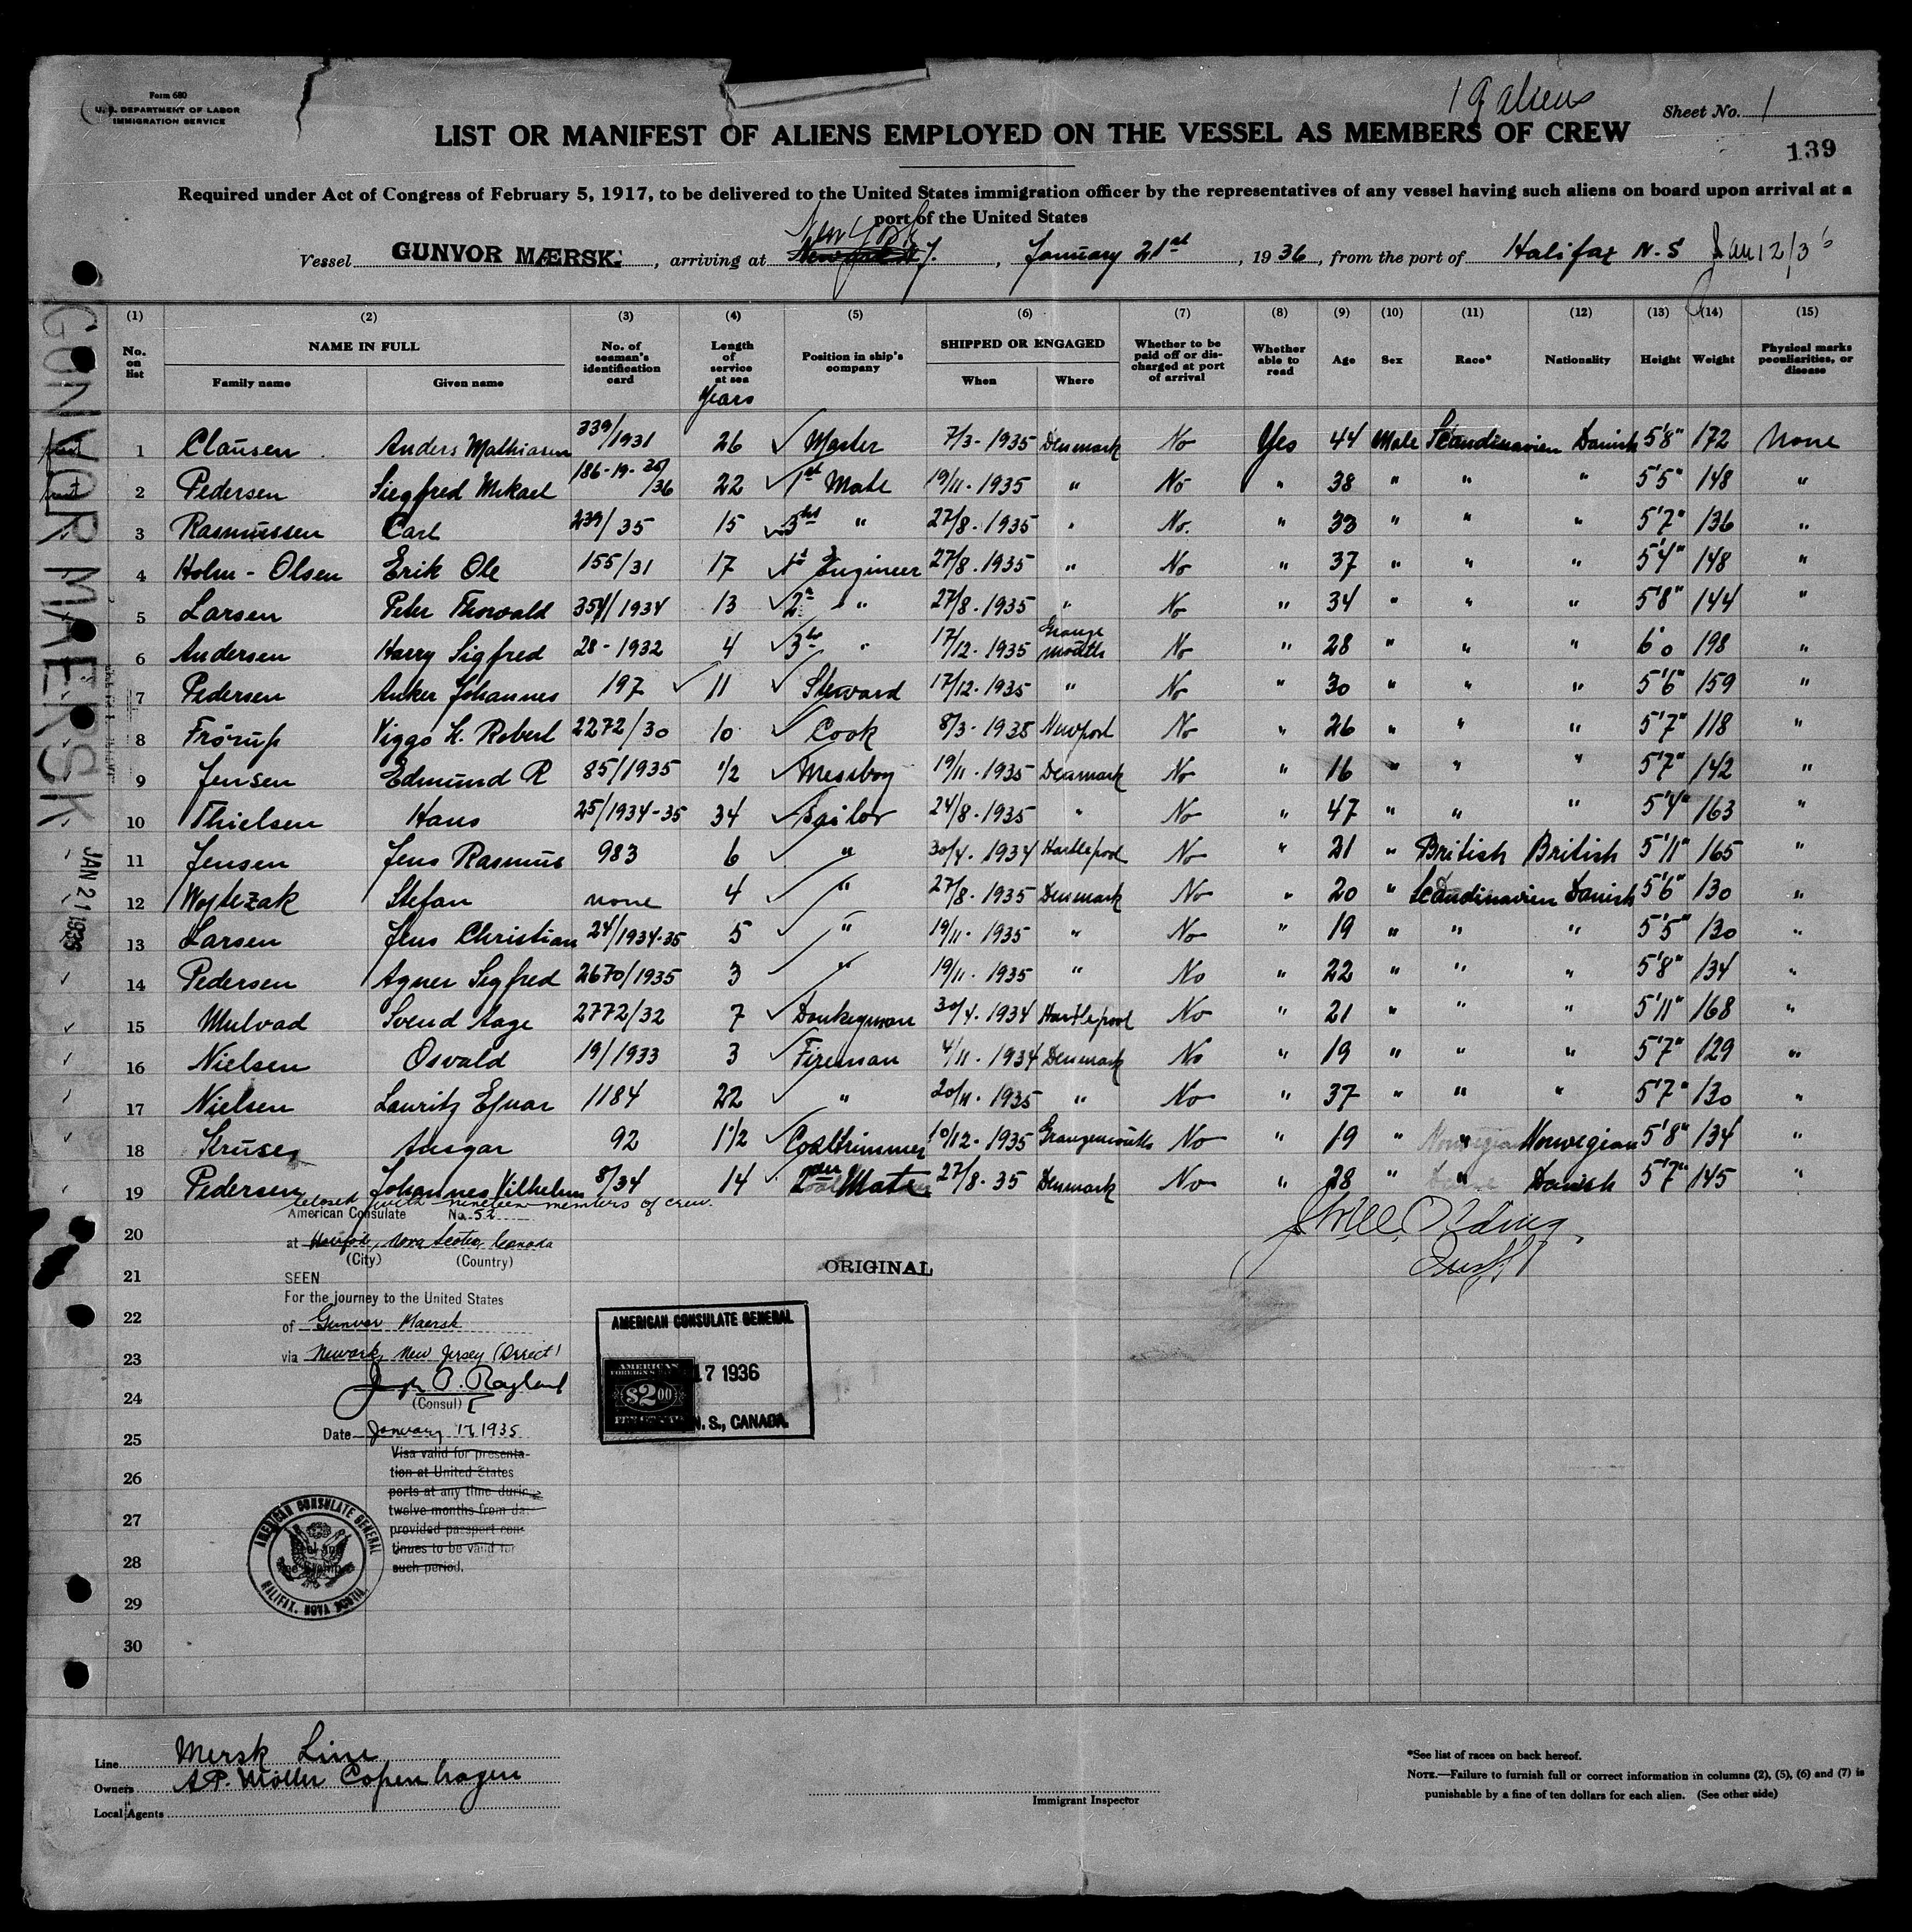 Form 680
U. S. DEPARTMENT OF LABOR
IMMIGRATION SERVICE
19 aliens
Sheet No. 1
139
LIST OR MANIFEST OF ALIENS EMPLOYED ON THE VESSEL AS MEMBERS OF CREW
Required under Act of Congress of February 5, 1917, to be delivered to the United States immigration officer by the representatives of any vessel having such aliens on board upon arrival at a
port of the United States
New York
Vessel GUNVOR MÆRSK, arriving at Newark N.J., January 21st, 1936, from the port of Halifax N.S
GUNVOR MAERSK
JAN 21 1936
(1) (2) (3) (4) (5) (6) (7) (8) (9) (10) (11) (12) (13) (14) (15)
No. on list NAME IN FULL Family name Given name No. of seaman's identification card Length of service at sea Years Position in ship's company SHIPPED OR ENGAGED When Where Whether to be paid off or discharged at port of arrival Whether able to read Age Sex Race* Nationality Height Weight Physical marks peculiarities, or disease
1 Clausen Anders Mathiasen 339/1931 26 Master 7/3-1935 Denmark No Yes 44 Male Scandinavien Danish 5'8" 172 None
2 Pedersen Siegfred Mikael 186-19-35/36 22 1st Mate 19/11-1935 " No " 38 " " " 5'5" 148 "
3 Rasmussen Carl 239/35 15 3rd " 27/8-1935 " No. " 33 " " " 5'7" 136 "
4 Holm-Olsen Erik Ole 155/31 17 1st Engineer 27/8.1935 " No " 37 " " " 5'4" 148 "
5 Larsen Peter Thorvald 354/1934 13 2n " 27/8-1935 " No " 34 " " " 5'8" 144 "
6 Andersen Harry Sigfred 28-1932 4 3rd " 17/12-1935 Grangemouth No " 28 " " " 6'0 198 "
7 Pedersen Anker Johannes 197 11 Steward 17/12-1935 " No " 30 " " " 5'6" 159 "
8 Frörup Viggo H. Robert 2272/30 10 Cook 8/3-1935 Newport No " 26 " " " 5'7" 118 "
9 Jensen Edmund R 85/1935 1/2 Messboy 19/11-1935 Denmark No " 16 " " " 5'7" 142 "
10 Thielsen Hans 25/1934-35 34 Sailor 24/8-1935 " No " 47 " " " 5'4" 163 "
11 Jensen Jens Rasmus 983 6 " 30/4.1934 Hartlepool No " 21 " British British 5'11" 165 "
12 Wojtezak Stefan none 4 " 27/8-1935 Denmark No " 20 " Scandinavien Danish 5'6" 130 "
13 Larsen Jens Christian 24/1934-35 5 " 19/11-1935 " No " 19 " " " 5'5" 130 "
14 Pedersen Agner Sigfred 2670/1935 3 " 19/11-1935 " No " 22 " " " 5'8" 134 "
15 Mulvad Svend Aage 2772/32 7 Donkeyman 30/4.1934 Hartlepool No " 21 " " " 5'11" 168 "
16 Nielsen Osvald 19/1933 3 Fireman 4/11-1934 Denmark No " 19 " " " 5'7" 129 "
17 Nielsen Lauritz Ejnar 1184 22 " 20/11-1935 " No " 37 " " " 5'7" 130 "
18 Kruse Ansgar 92 1 1/2 Coaltrimmer 10/12-1935 Grangemouth No " 19 " " Norwegian 5'8" 134 "
19 Pedersen Johannes Vilhelm 8/34 14 2nd Mate 27/8-35 Denmark No " 28 " " Danish 5'7" 145 "
closed with nineteen members of crew.
American Consulate No. 52
20
at Halifax, Nova Scotia, Canada
(City) (Country)
ORIGINAL
21
SEEN
For the journey to the United States
22
of Gunvor Maersk
23
via Newark, New Jersey (Direct)
24
(Consul)
Date January 17, 1935
25
Visa valid for presenta-
tion at United States
26
ports at any time durin
twelve months from da
27
provided passport con-
tinues to be valid for
28
such period.
29
30
AMERICAN CONSULATE GENERAL
AMERICAN FOREIGN $2.00
17 1936
N. S., CANADA.
AMERICAN CONSULATE GENERAL
HALIFAX, NOVA SCOTIA
Line Mersk Line
Owners A.P. Möller Copenhagen
Local Agents
Immigrant Inspector
*See list of races on back hereof.
NOTE.—Failure to furnish full or correct information in columns (2), (5), (6) and (7) is
punishable by a fine of ten dollars for each alien. (See other side)